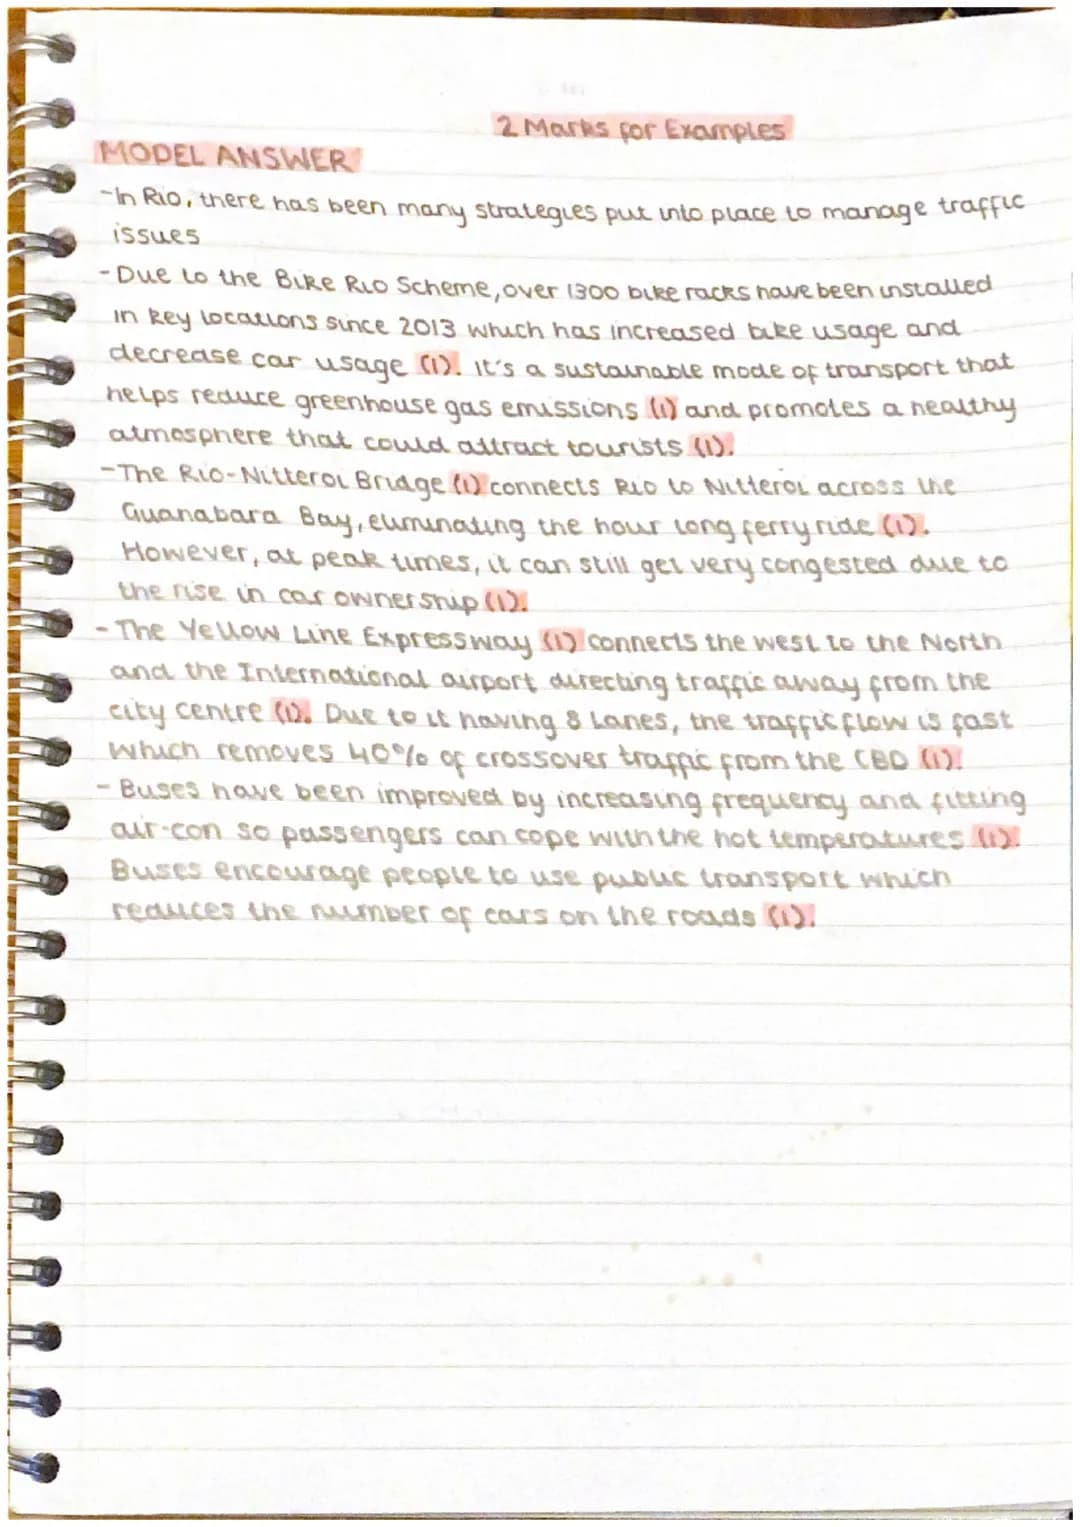 2 Marks for Examples
MODEL ANSWER
-In Rio, there has been many strategies put into place to manage traffic
issues
-Due to the Bike Rio Scheme, over 1300 bike racks have been installed
in key locations since 2013 which has increased bike usage and
decrease car usage (1). It's a sustainable mode of transport that
helps reduce greenhouse gas emissions (1) and promotes a healthy
atmosphere that could attract tourists (1).
-The Rio-Nitteroi Bridge (1) connects Rio to Nitteroi across the
Guanabara Bay, eliminating the hour long ferry ride (1).
However, at peak times, it can still get very congested due to
the rise in car ownership (1).
-The Yellow Line Expressway (1) connects the west to the North
and the International airport directing traffic away from the
city centre (1). Due to it having 8 Lanes, the traffic flow is fast
which removes 40% of crossover traffic from the CBD (1).
-Buses have been improved by increasing frequency and fitting
air-con so passengers can cope with the hot temperatures (1).
Buses encourage people to use public transport which
reduces the number of cars on the roads (1).